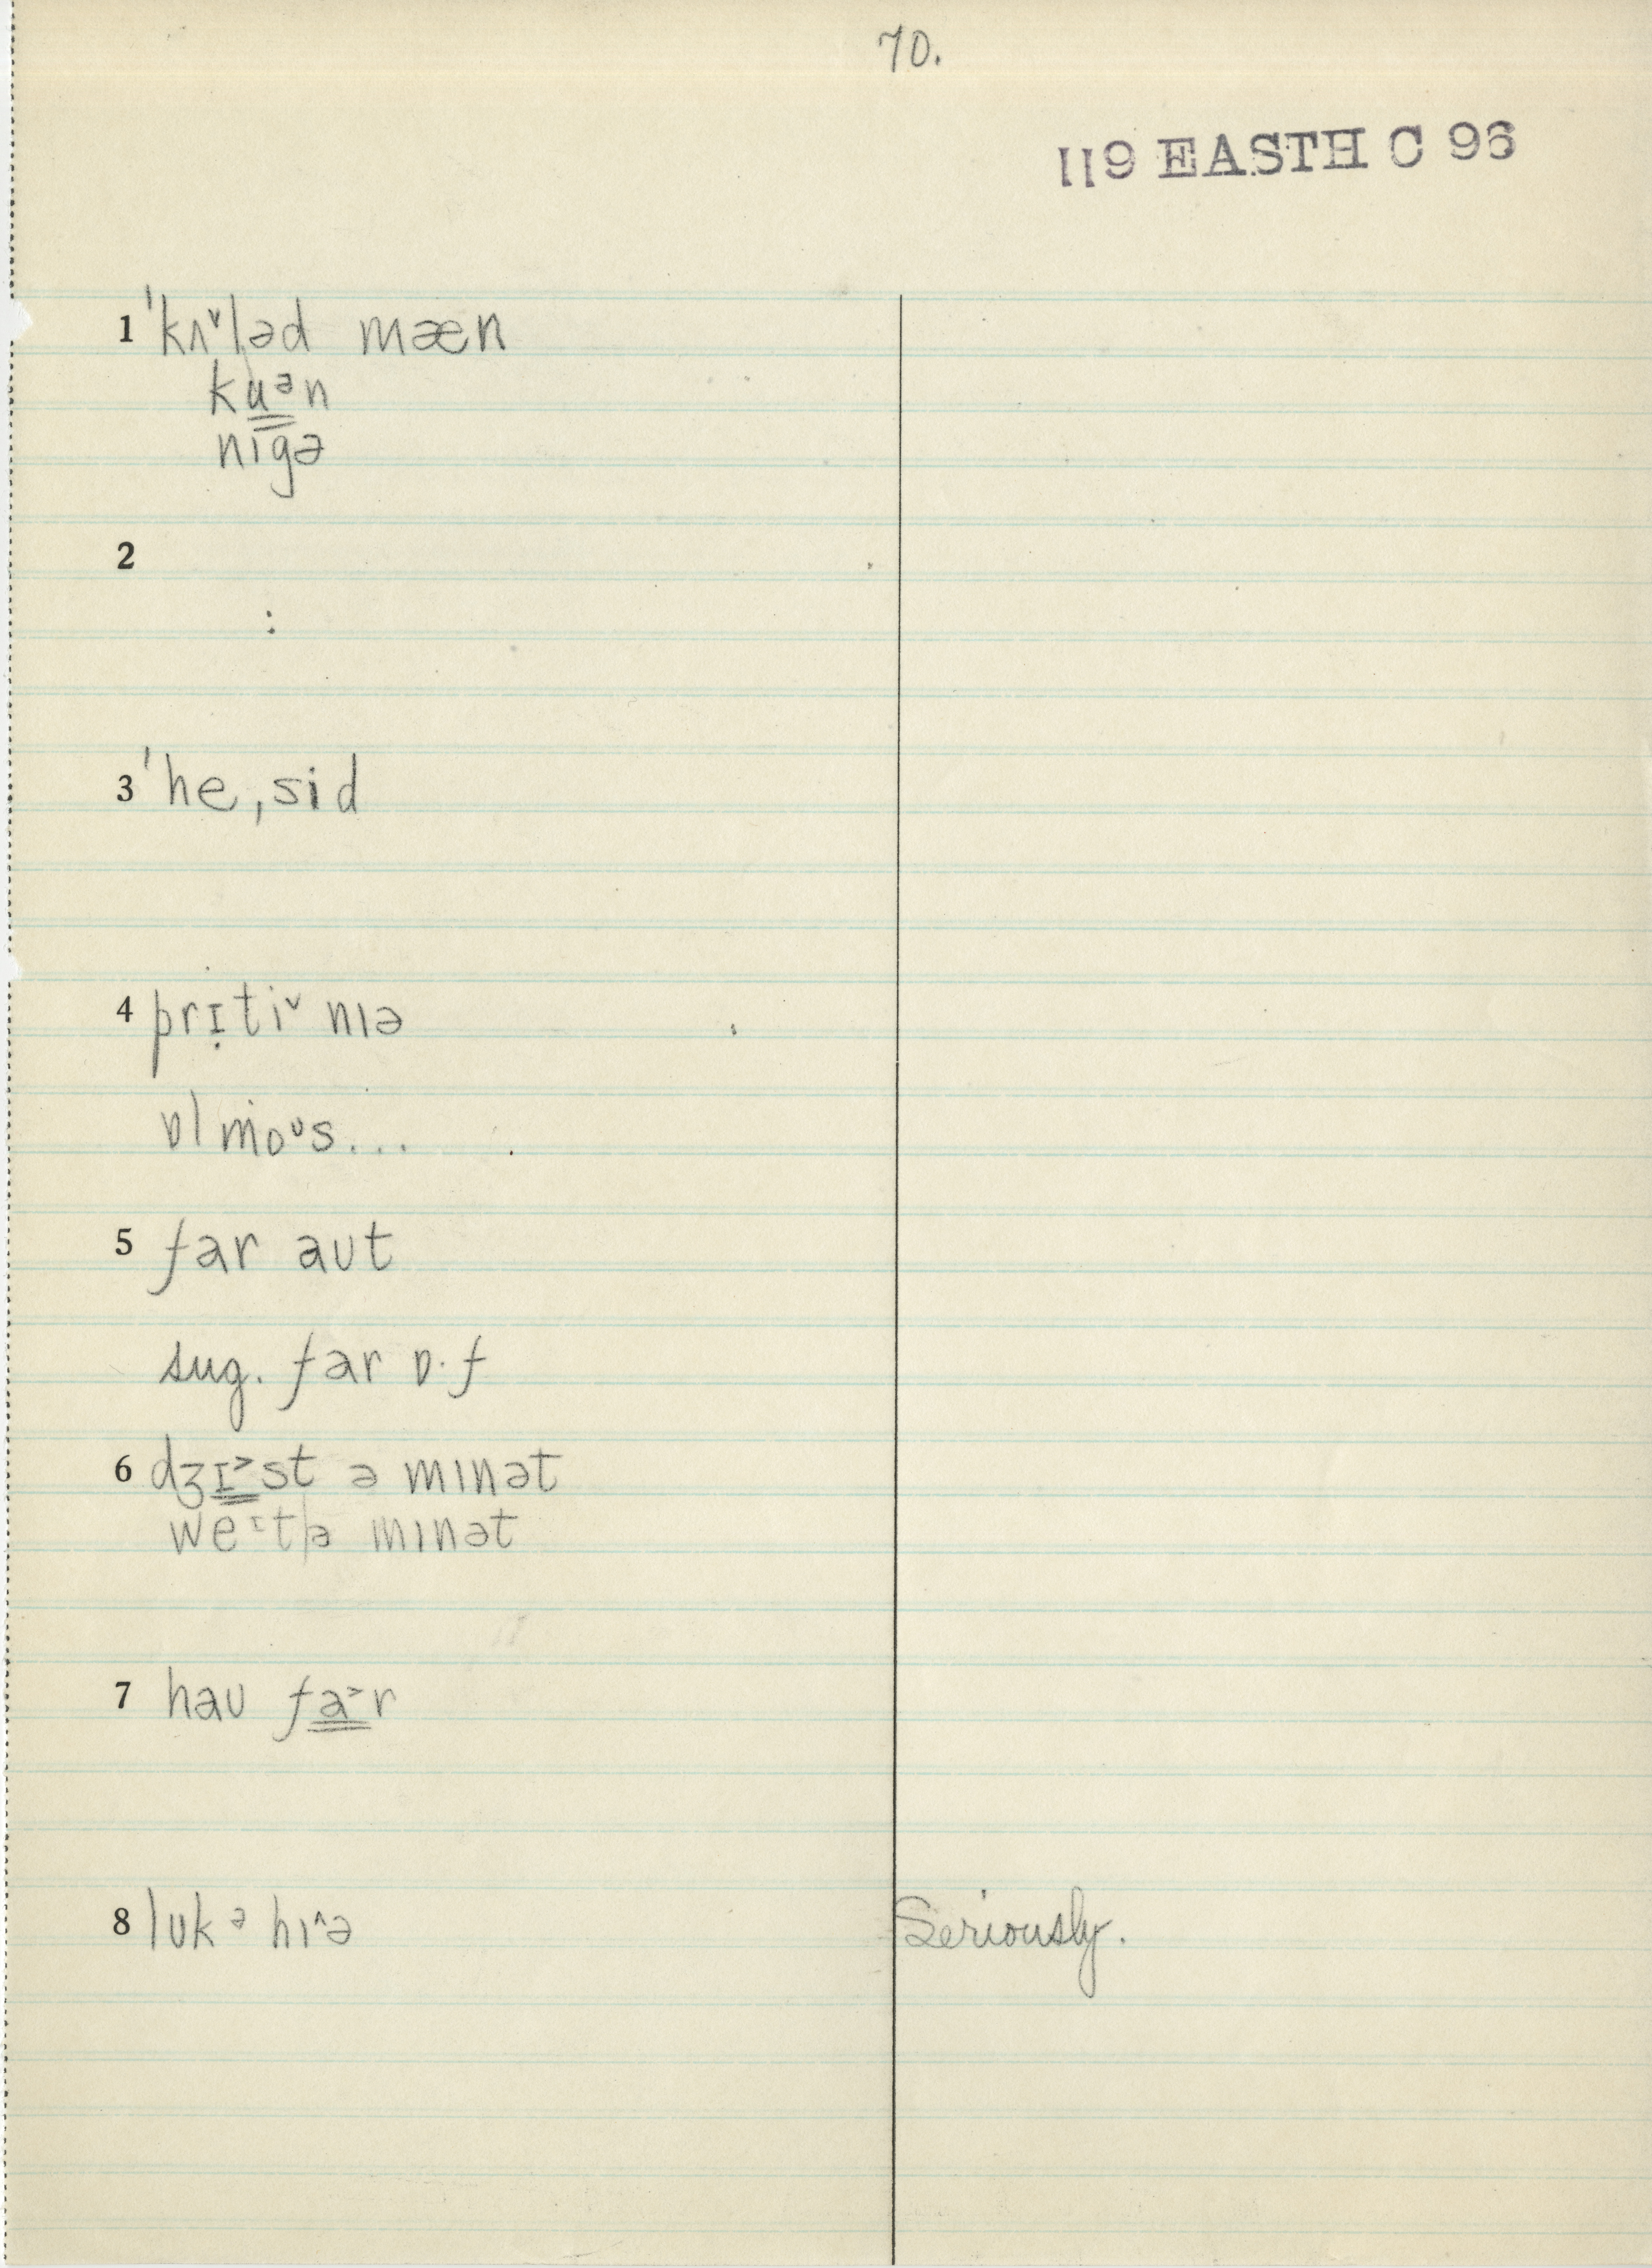 70.
119 EASTH C 96
1 ˈkʌ˅ləd mæn
kuᵊn
nigə
2
:
3 ˈheˌsid
4 prɪ̣ti˅ nɪə
ɒlmoᶷs...
5 far aʊt
sug. far ɒ·f
6 dʒɪ˃st ə mɪnət
weᶦt|ə mɪnət
7 haʊ fa˃r
8 lʊk ᵊ hɪ˄ə Seriously.